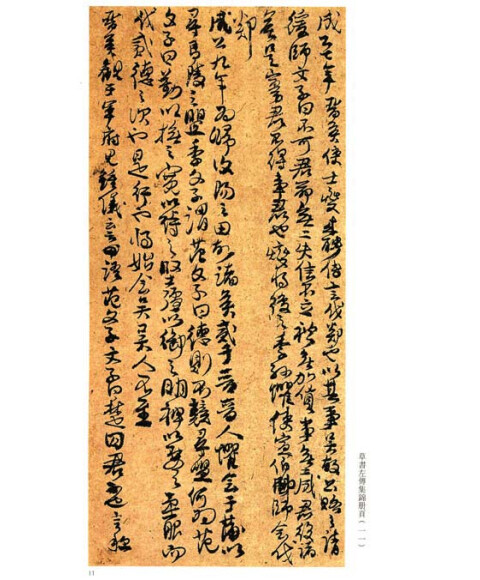 成公年晉侯使士燮來聘傳言伐郯也以其事吳故公賂之請
緩師文子曰不可君命無二失信不立禮無加貨事無二成君後諸
侯是寡君不得事君也燮將復之季孫懼使宣伯帥師會伐
郯
成公九年為歸汶陽之田故諸侯貳于晉晉人懼會于蒲以
尋馬陵之盟季文子謂范文子曰德則不競尋盟何為范
文子曰勤以撫之寬以待之堅彊以御之明神以要之柔服而
伐貳德之次也是行也將始會吳吳人不至
晉侯觀于軍府見鍾儀語范文子文子曰楚囚君言稱
草書左傳集錦册頁(一一)
11